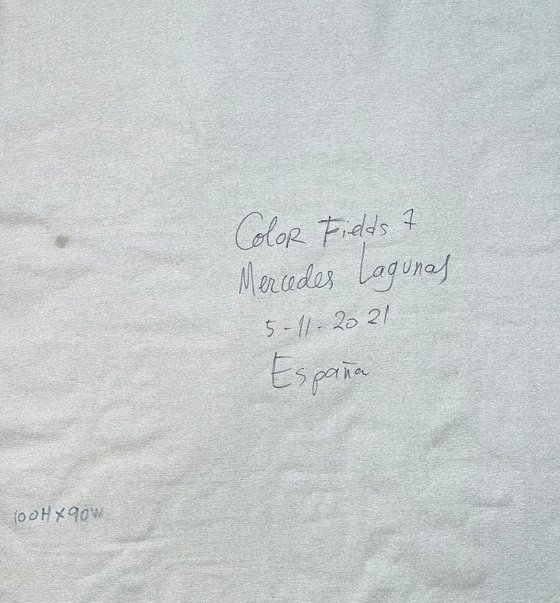 Color Fields 7
Mercedes Lagunas
5-11-2021
España
100H X 90W